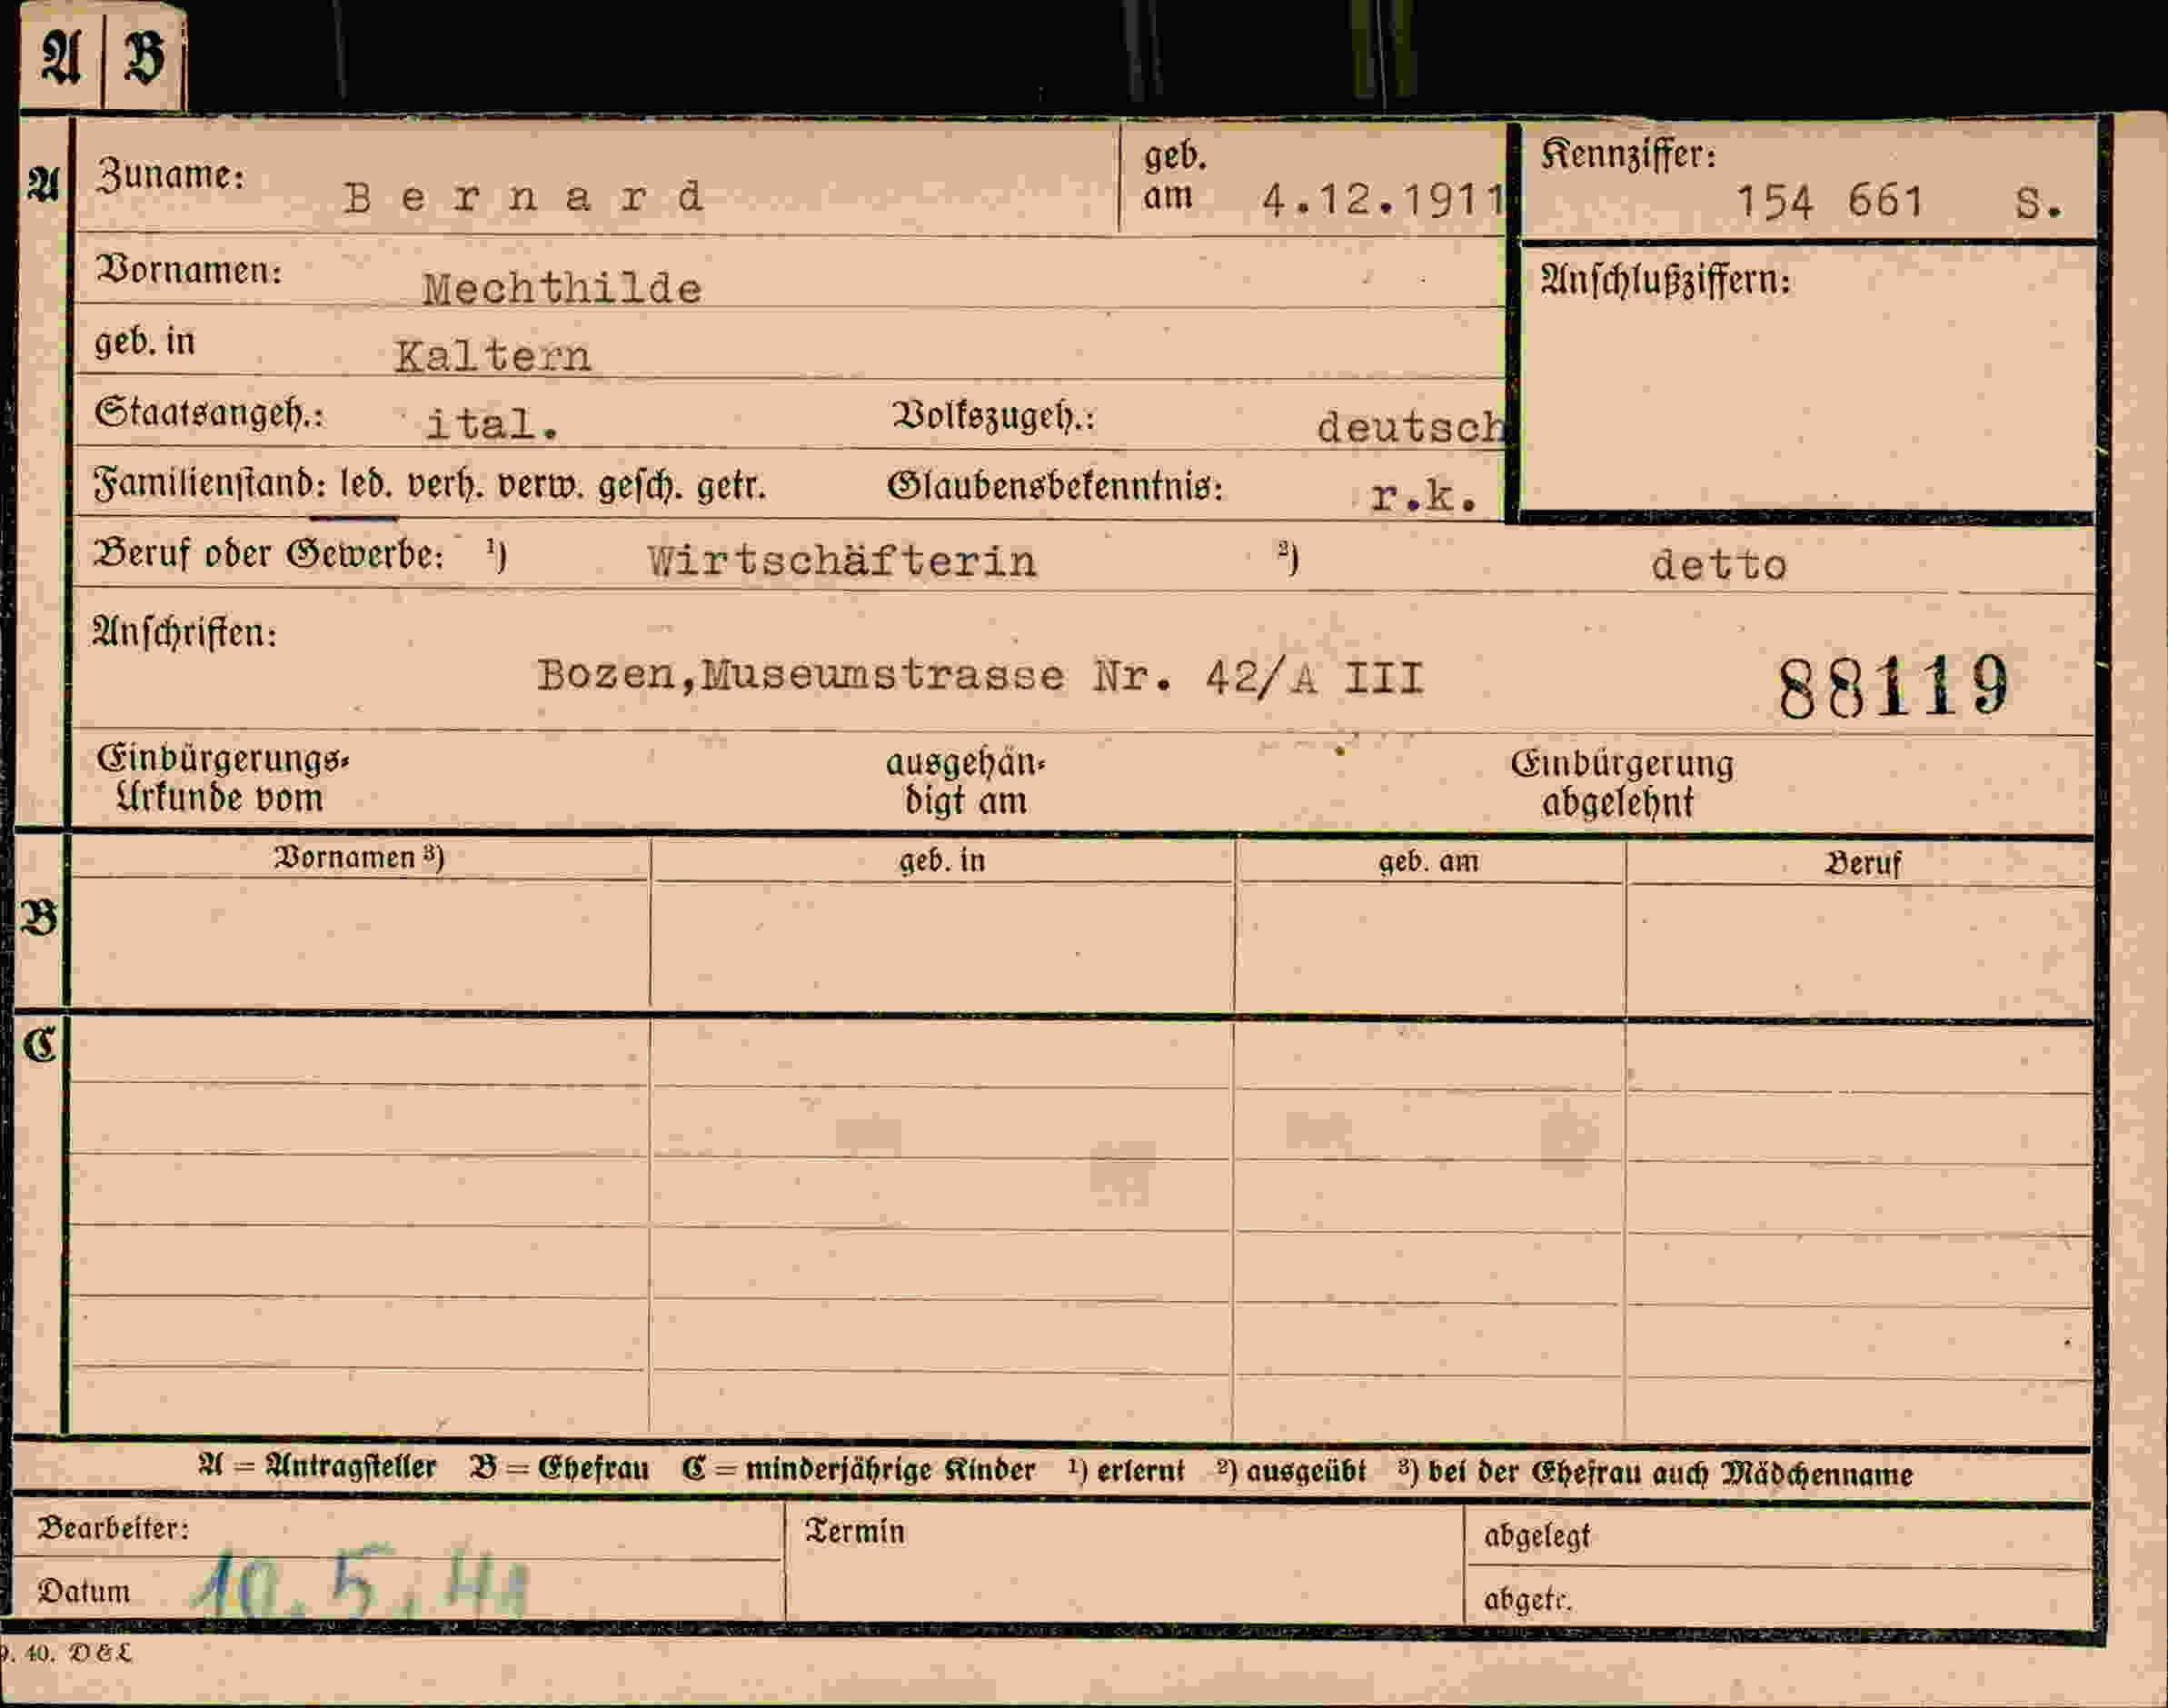 A B
A Zuname: Bernard geb. am 4.12.1911 Kennziffer: 154 661 S.
Vornamen: Mechthilde Anschlußziffern:
geb. in Kaltern
Staatsangeh.: ital. Volkszugeh.: deutsch
Familienstand: led. verh. verw. gesch. getr. Glaubensbekenntnis: r.k.
Beruf oder Gewerbe: ¹) Wirtschäfterin ²) detto
Anschriften:
Bozen,Museumstrasse Nr. 42/A III 88119
Einbürgerungs- ausgehän- Einbürgerung
Urkunde vom digt am abgelehnt
Vornamen ³) geb. in geb. am Beruf
B
C
A = Antragsteller B = Ehefrau C = minderjährige Kinder ¹) erlernt ²) ausgeübt ³) bei der Ehefrau auch Mädchenname
Bearbeiter: Termin abgelegt
Datum 10.5.41 abgetr.
40. D&L